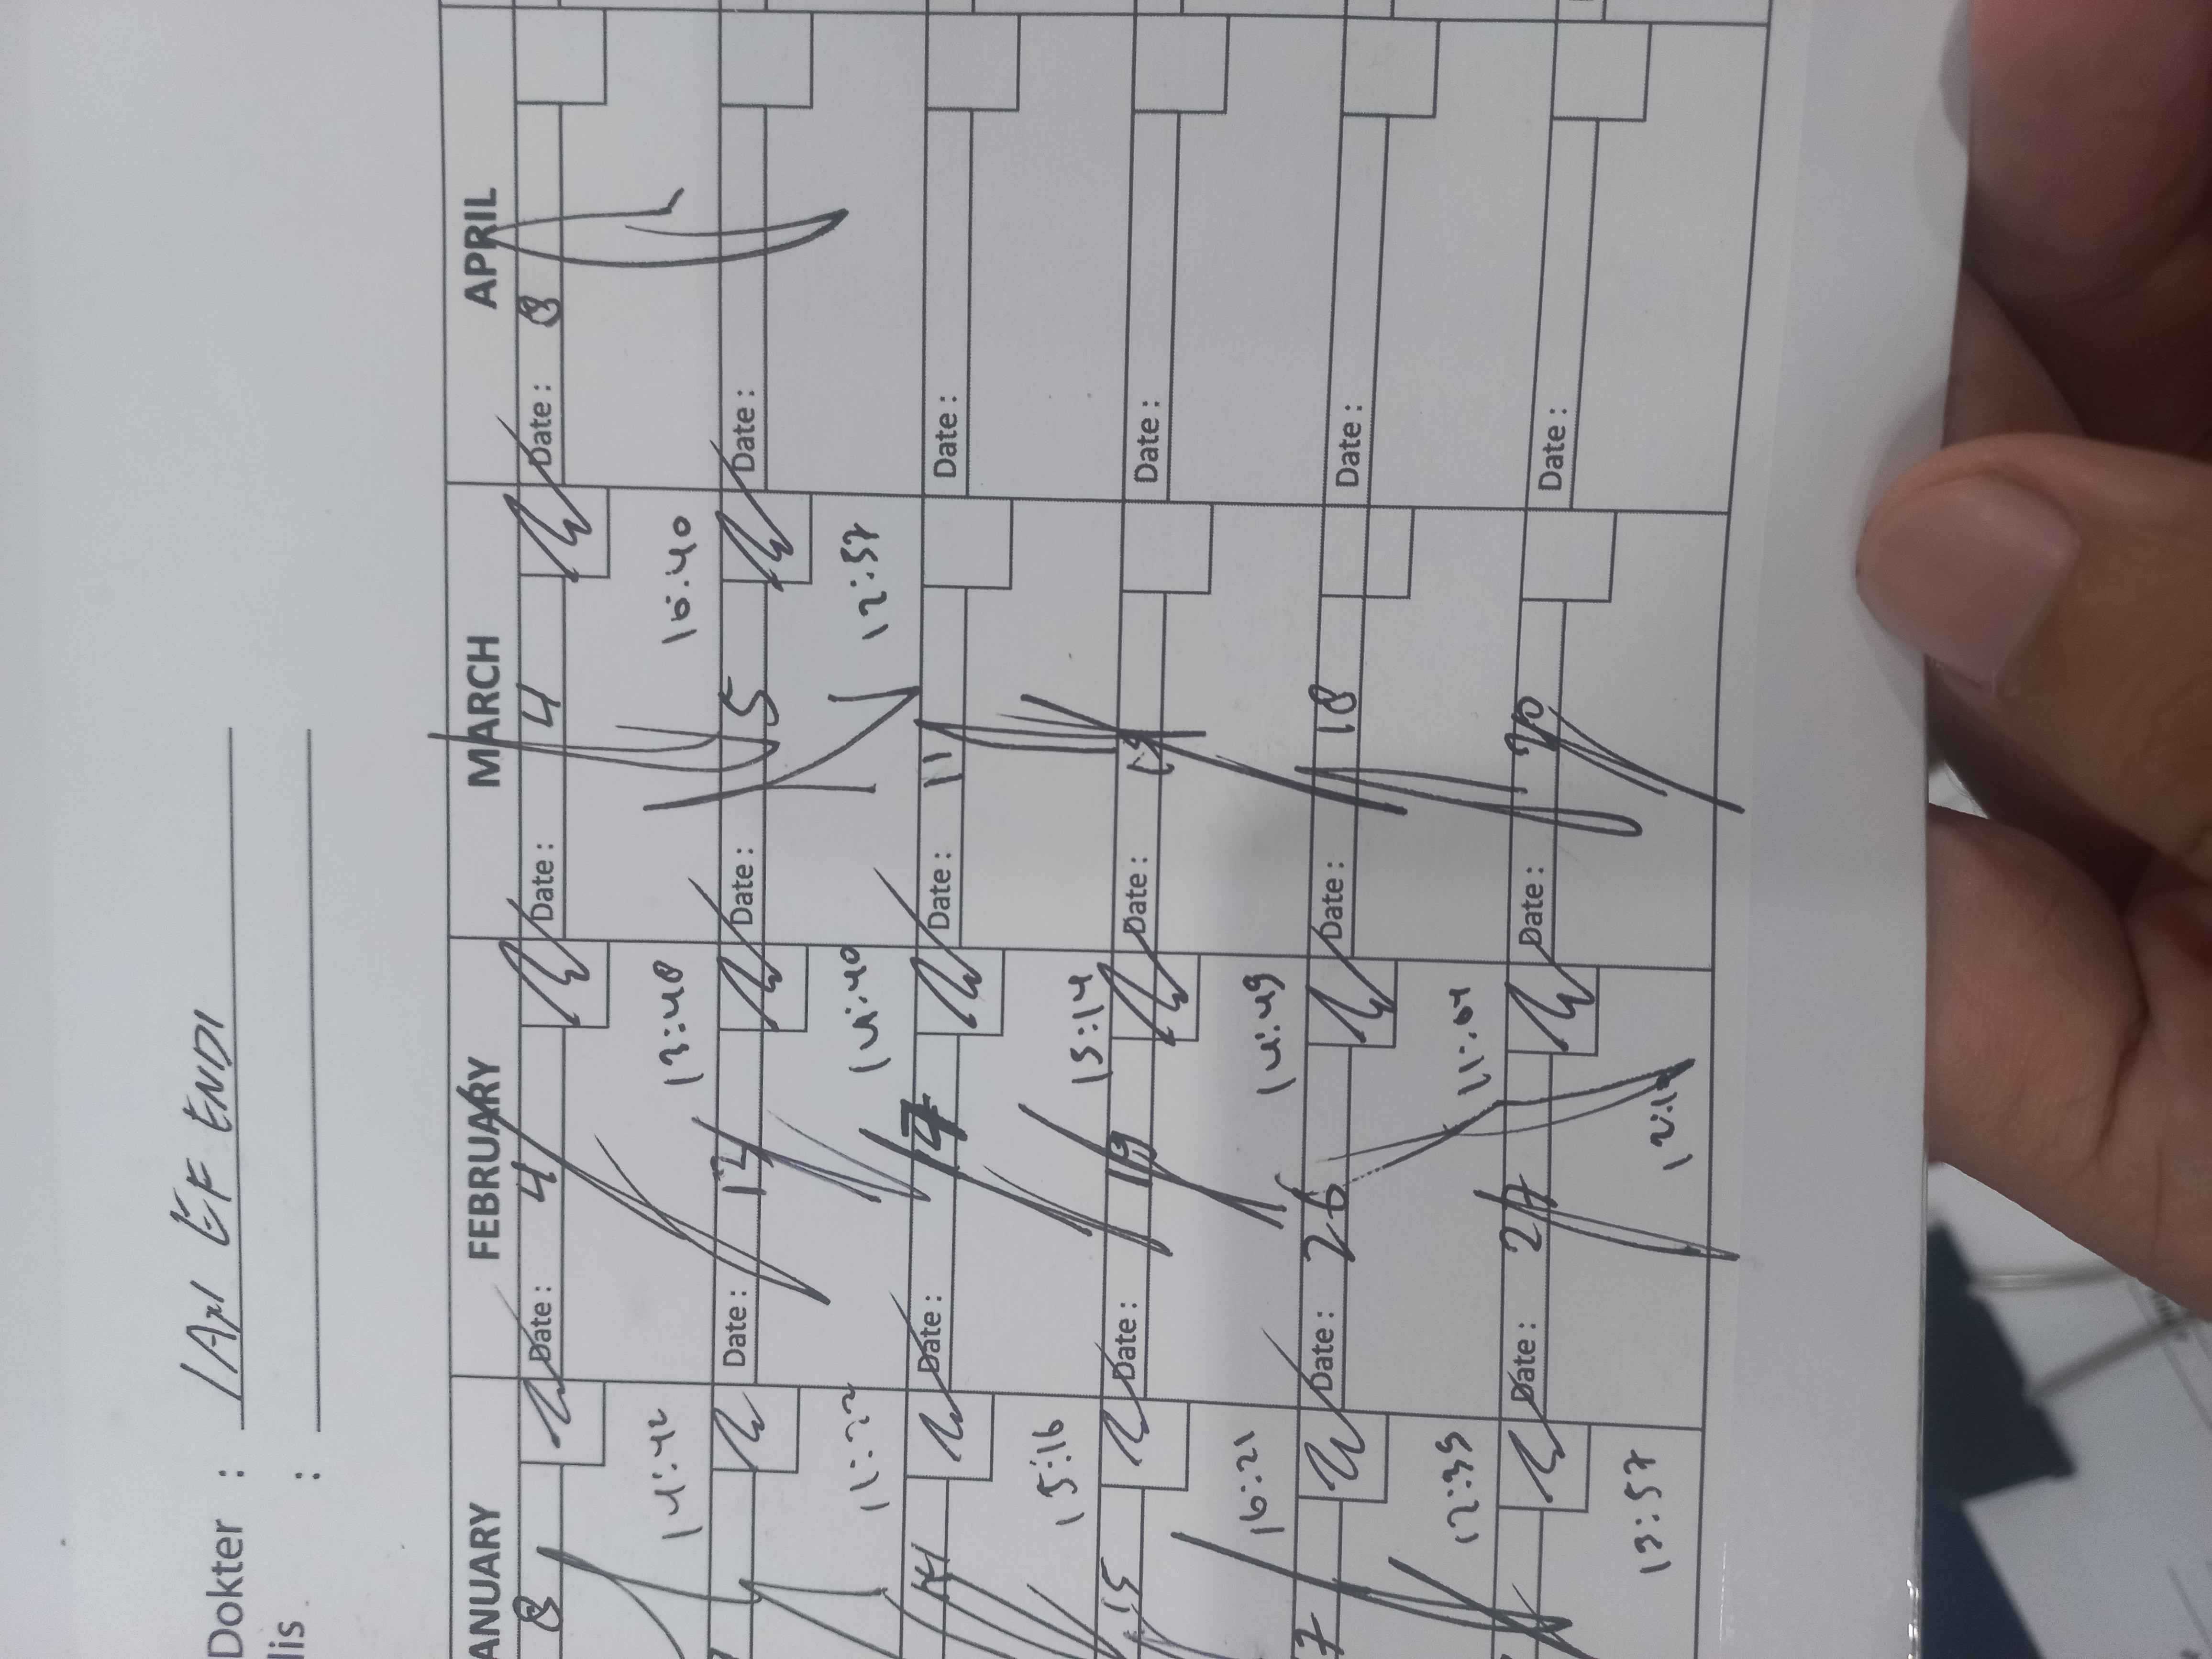 Dokter :
lis :
EFENDI
ANUARY FEBRUARY MARCH APRIL
8 Date: 4 Date: 4 Date: 8
14:42 13:48 16:40
Date: 12 Date: 5 Date:
11:22 14:40 12:57
14 Date: 17 Date: 11 Date:
15:16 15:14
15 Date: 19 Date: Date:
16:21 14:49
7 Date: 26 Date: 18 Date:
12:39 11:04
Date: 27 Date: 20 Date:
13:57